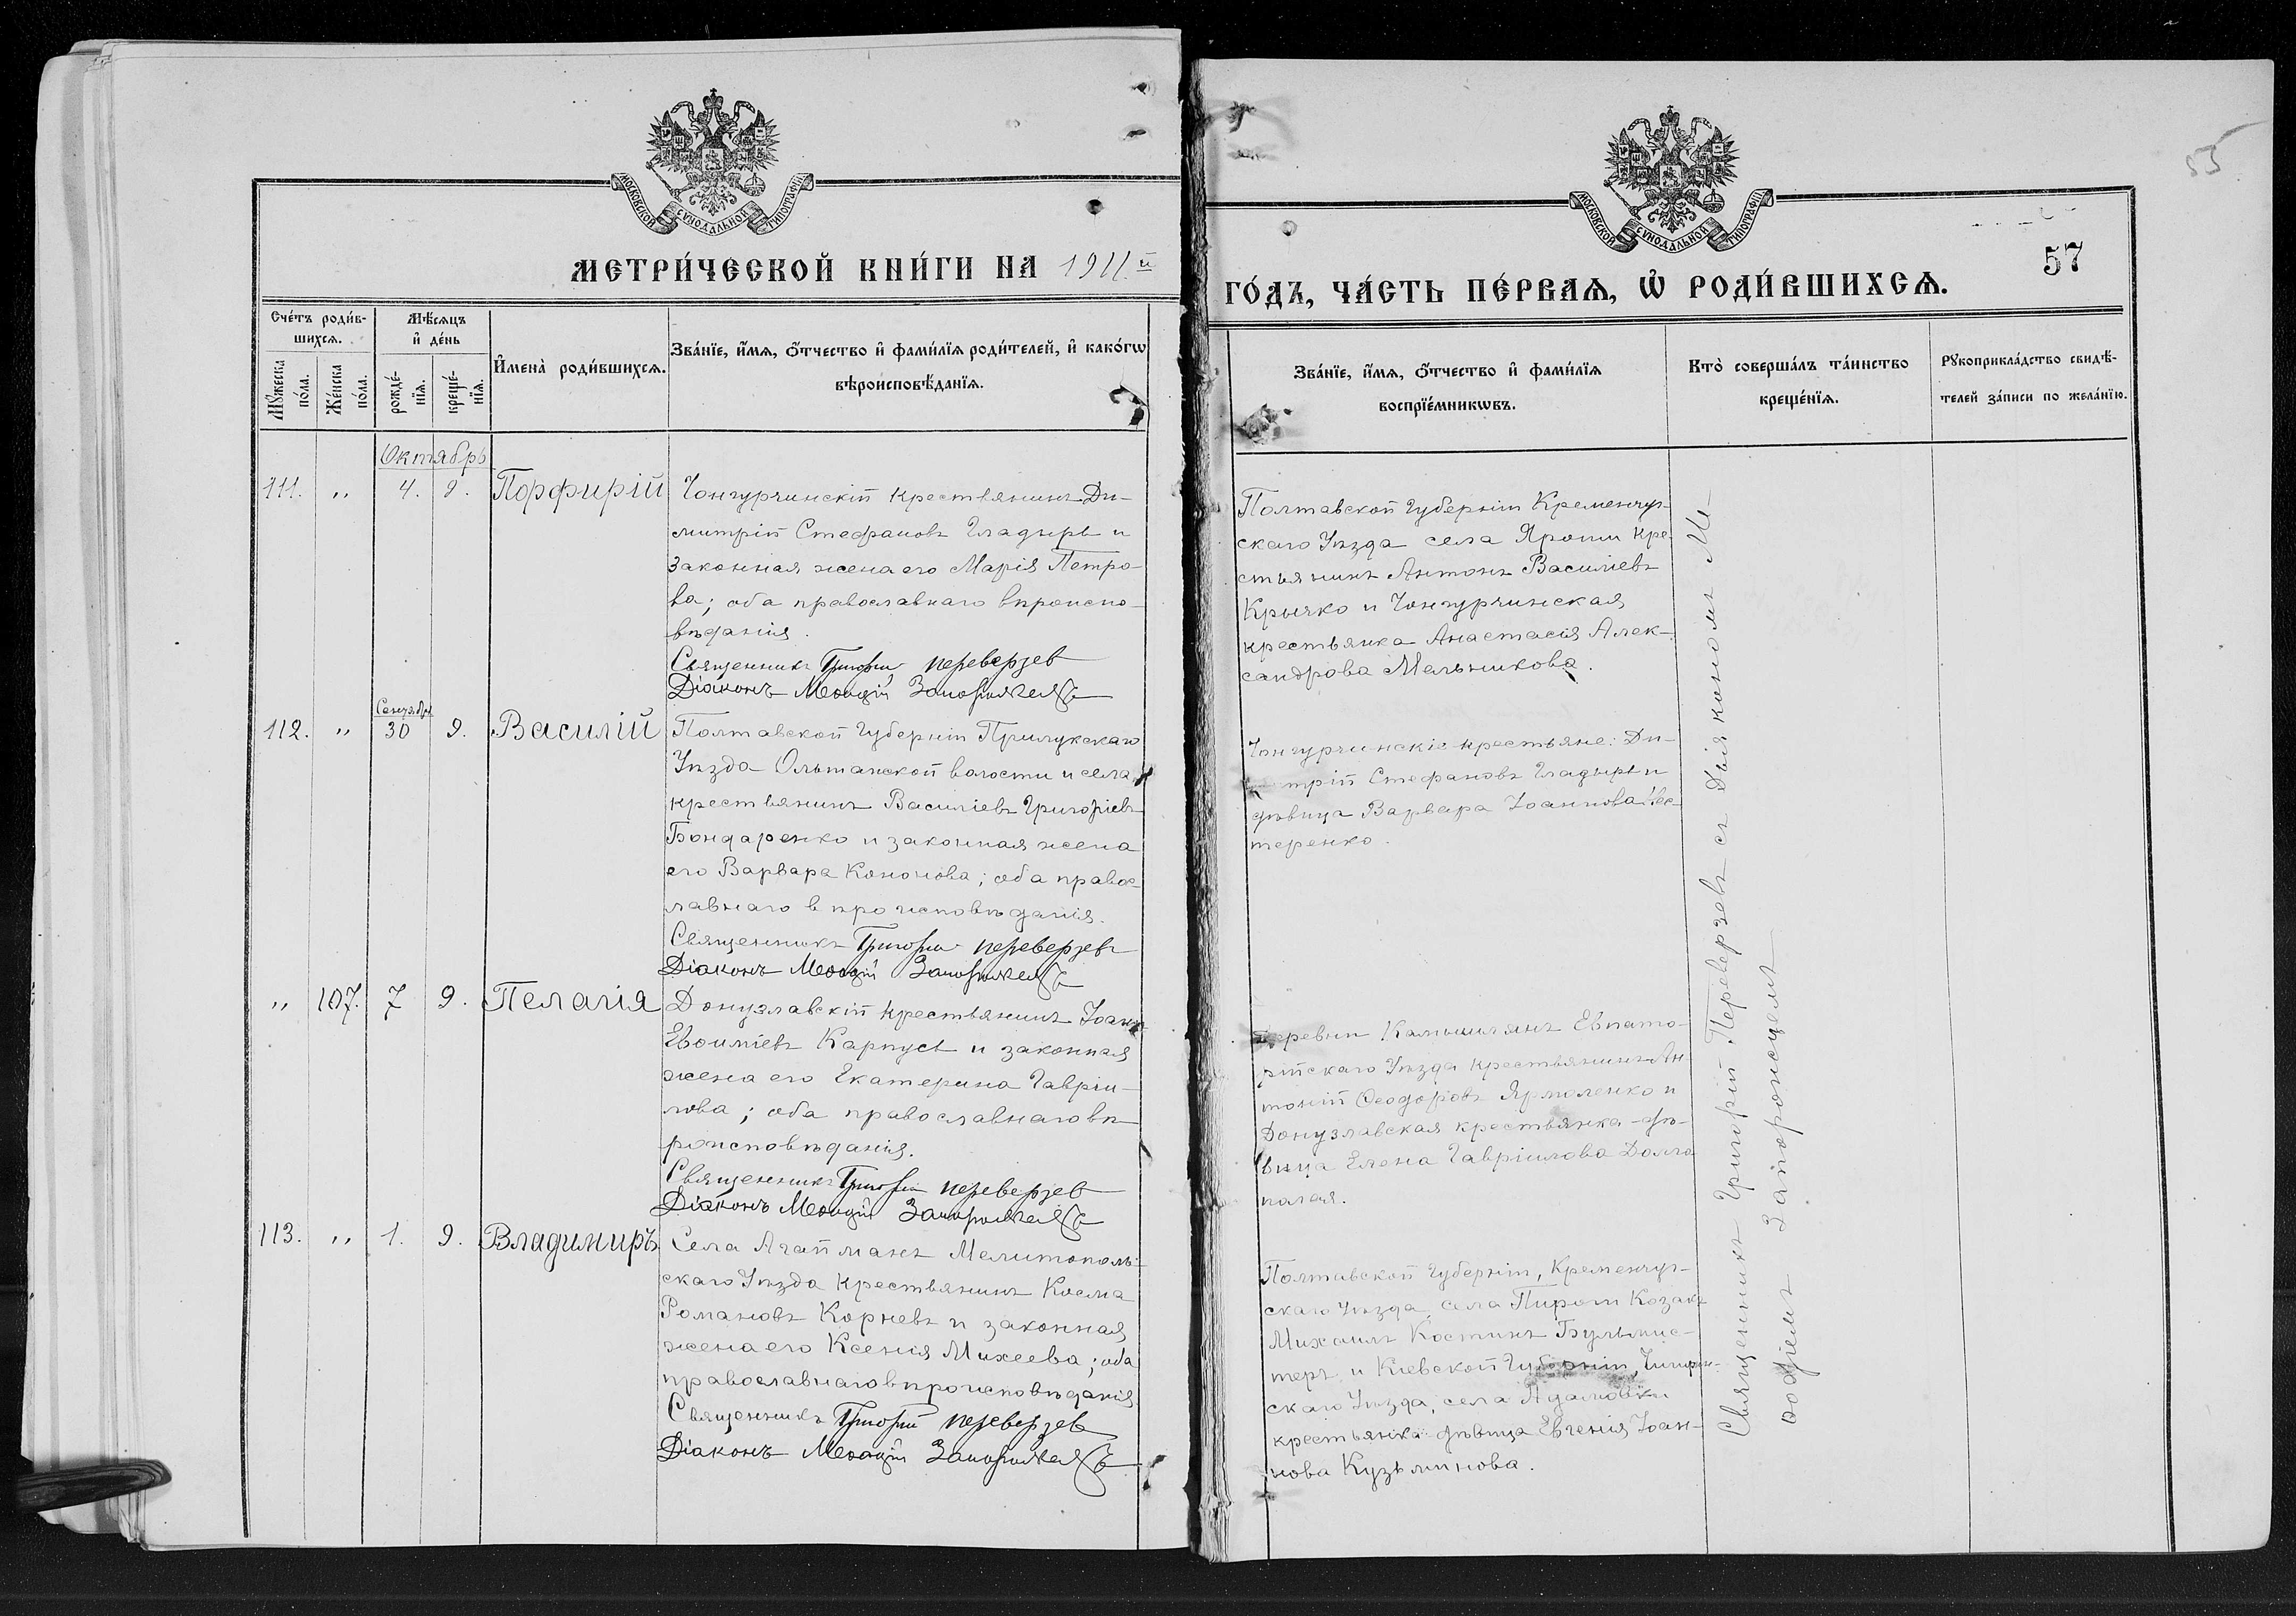 МОСКОВСКОЙ СѴНОДАЛЬНОЙ ТИПОГРАФІИ
МЕТРИ́ЧЕСКОЙ КНИ́ГИ НА 1911.й
Сче́тъ роди́в-
шихсѧ.
Мѣ́сѧцъ
и҆ де́нь
Мꙋ́жеска
по́ла.
Же́нска
по́ла.
рожде́-
нїѧ.
креще́-
нїѧ.
И҆мена̀ роди́вшихсѧ.
Зва́нїе, и҆́мѧ, ѻ҆́тчество и҆ фами́лїѧ роди́телей, и҆ како́гѡ
вѣроисповѣ́данїѧ.
Октябрь
111. " 4. 9. Порфирій
Чонгурчинскій крестьянинъ Ди-
митрій Стефановъ Гладырь и
законная жена его Марія Петро-
ва; оба православнаго вѣроиспо-
вѣданія.
Священникъ Григорій Переверзев
Діаконъ Меѳодій Запорожецъ
Сентябрь
112. " 30 9. Василій
Полтавской Губерніи Прилукскаго
Уѣзда Ольшанской волости и села
крестьянинъ Василіевъ Григоріевъ
Бондаренко и законная жена
его Варвара Кононова; оба правос-
лавнаго вѣроисповѣданія.
Священникъ Григорій Переверзевъ
Діаконъ Меѳодій Запорожецъ
" 107. 7 9. Пелагія
Донузлавскій крестьянинъ Іоаннъ
Евѳиміевъ Карпусь и законная
жена его Екатерина Гавріи-
лова; оба православнаго вѣ-
роисповѣданія.
Священникъ Григорій Переверзев
Діаконъ Меѳодій Запорожецъ
113. " 1. 9. Владимиръ
Села Агайманъ Мелитополь-
скаго Уѣзда крестьянинъ Косма
Романовъ Корневъ и законная
жена его Ксенія Михеева; оба
православнаго вѣроисповѣданія.
Священникъ Григорій Переверзев
Діаконъ Меѳодій Запорожецъ
55
МОСКОВСКОЙ СѴНОДАЛЬНОЙ ТИПОГРАФІИ
57
ГО́ДЪ, ЧА́СТЬ ПЕ́РВАѦ, Ѡ҆ РОДИ́ВШИХСѦ.
Зва́нїе, и҆́мѧ, ѻ҆́тчество и҆ фами́лїѧ
воспрїе́мникѡвъ.
Кто̀ соверша́лъ та́инство
креще́нїѧ.
Рꙋкоприкла́дство свидѣ́-
телей за́писи по жела́нїю.
Полтавской Губерніи Кременчуг-
скаго Уѣзда села Ярошм кре-
стьянинъ Антонъ Василіевъ
Крычко и Чонгурчинская
крестьянка Анастасія Алек-
сандрова Мельникова.
Чонгурчинскіе крестьяне: Ди-
митрій Стефановъ Гладырь и
дѣвица Варвара Іоаннова Нес-
теренко.
Деревни Камышлянъ Евпато-
рійскаго Уѣзда крестьянинъ Ан-
тоній Ѳеодоровъ Ярмоленко и
Донузлавская крестьянка дѣ-
вица Елена Гавріилова Долго
полая.
Полтавской Губерніи, Кременчуг-
скаго Уѣзда, села Пироги Козакъ
Михаилъ Костинъ Бульмис-
теръ и Кіевской Губерніи, Чигирин-
скаго Уѣзда, села Адамовки
крестьянка дѣвица Евгенія Іоан-
нова Кузьминова.
Священникъ Григорій Переверзевъ съ Діякономъ Ме-
ѳодіемъ Запорожцемъ